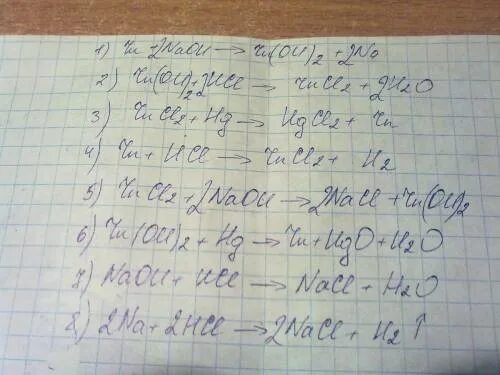 1) Zn + 2NaOH → Zn(OH)2 + 2Na
2) Zn(OH)2 + 2HCl → ZnCl2 + 2H2O
3) ZnCl2 + Hg → HgCl2 + Zn
4) Zn + HCl → ZnCl2 + H2
5) ZnCl2 + 2NaOH → 2NaCl + Zn(OH)2
6) Zn(OH)2 + Hg → Zn + HgO + H2O
7) NaOH + HCl → NaCl + H2O
8) 2Na + 2HCl → 2NaCl + H2↑